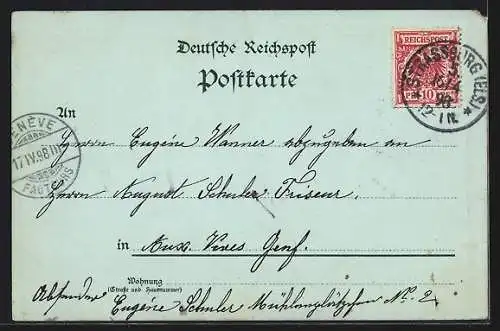 Deutsche Reichspost
Postkarte
REICHSPOST
10
STRASSBURG (ELS)
16 4
98
12 N.
GENÈVE
17.IV.98.III
FACTEURS
An
Herrn Eugène Wanner abzugeben an
Herrn August Schuler Friseur
in Aux. Vives Genf.
Wohnung
(Straße und Hausnummer)
Absender Eugène Schuler Mühlenplätzchen No. 2